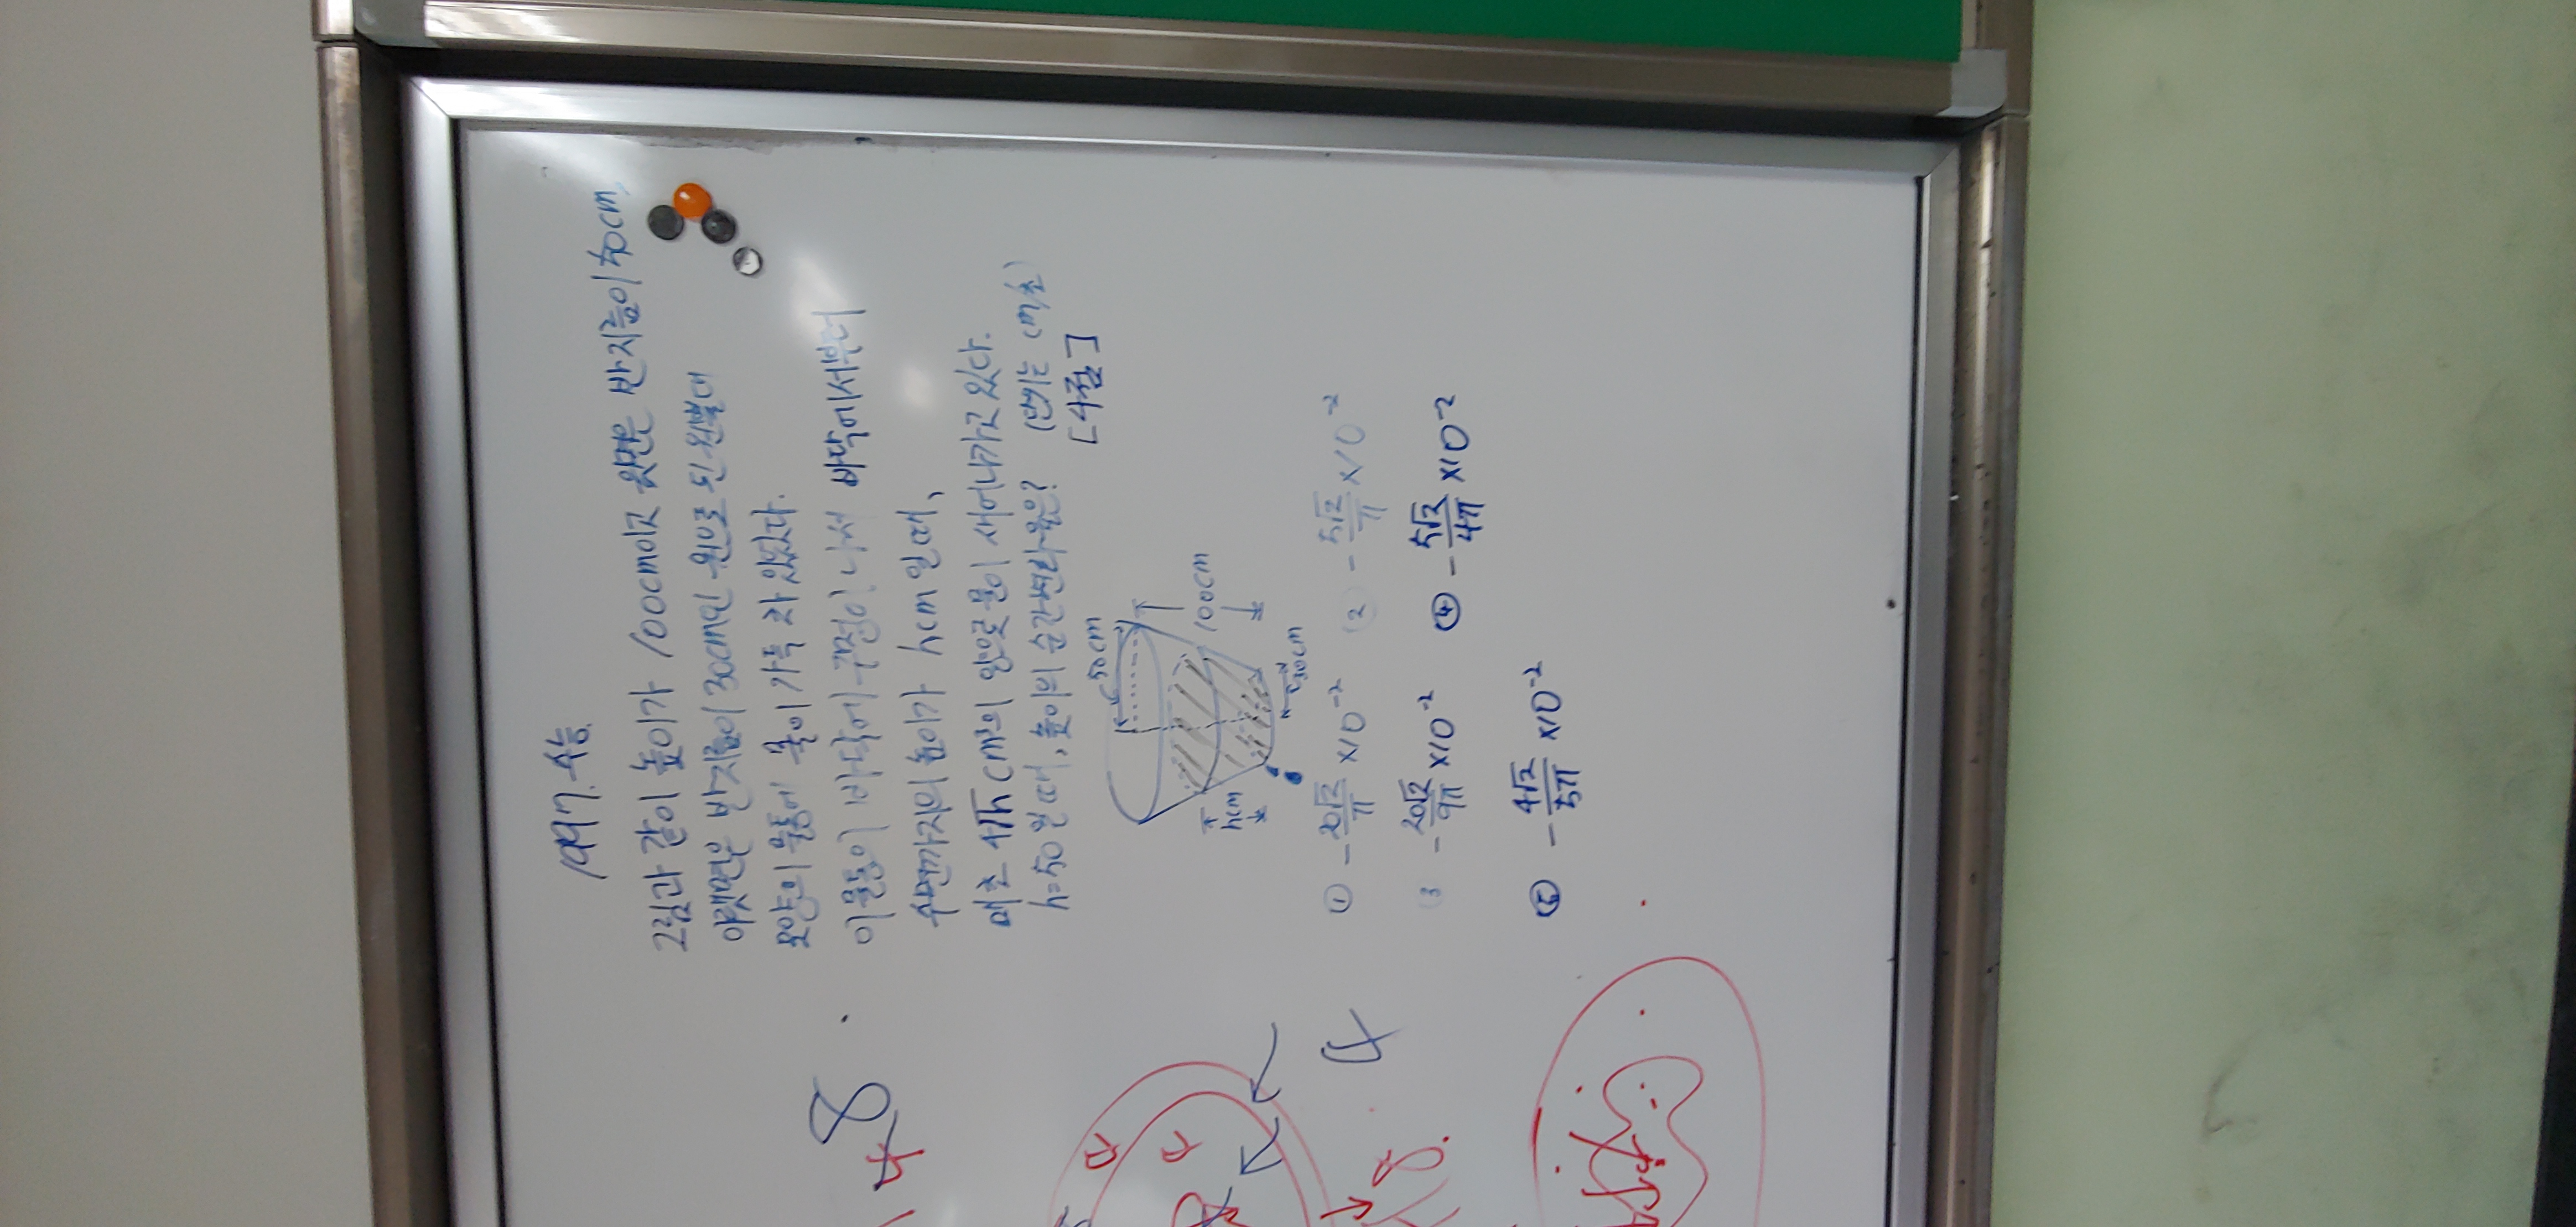 1997. 수능.
그림과 같이 높이가 100cm이고 윗면은 반지름이 50cm,
아랫면은 반지름이 30cm인 원으로 된 원뿔대
모양의 물통에 물이 가득 차 있었다.
이 물통이 바닥에 구멍이 나서 바닥에서부터
수면까지의 높이가 hcm 일 때,
매초 4√h cm³의 양으로 물이 새어나가고 있다.
h=50일 때, 높이의 순간변화율은? (단위는 cm/초)
[4점]
50cm
100cm
hcm
30cm
① -20√2/π ×10⁻² ② -5√2/π ×10⁻²
③ -20√2/9π ×10⁻² ④ -5√2/4π ×10⁻²
⑤ -4√2/5π ×10⁻²
4 8
4
8.